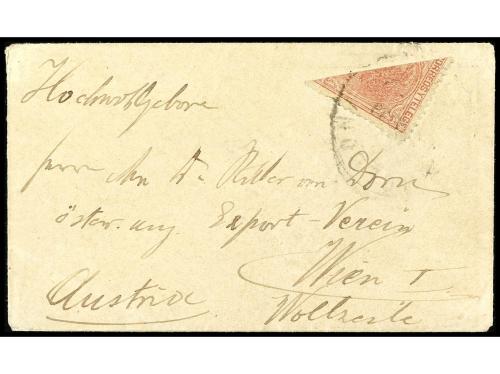 CORREOS Y TELEG
Hochwohlgebore
Herr Dr Ritter von Dorn
österr. ung. Export-Verein
Wien I
Austria Wollzeile